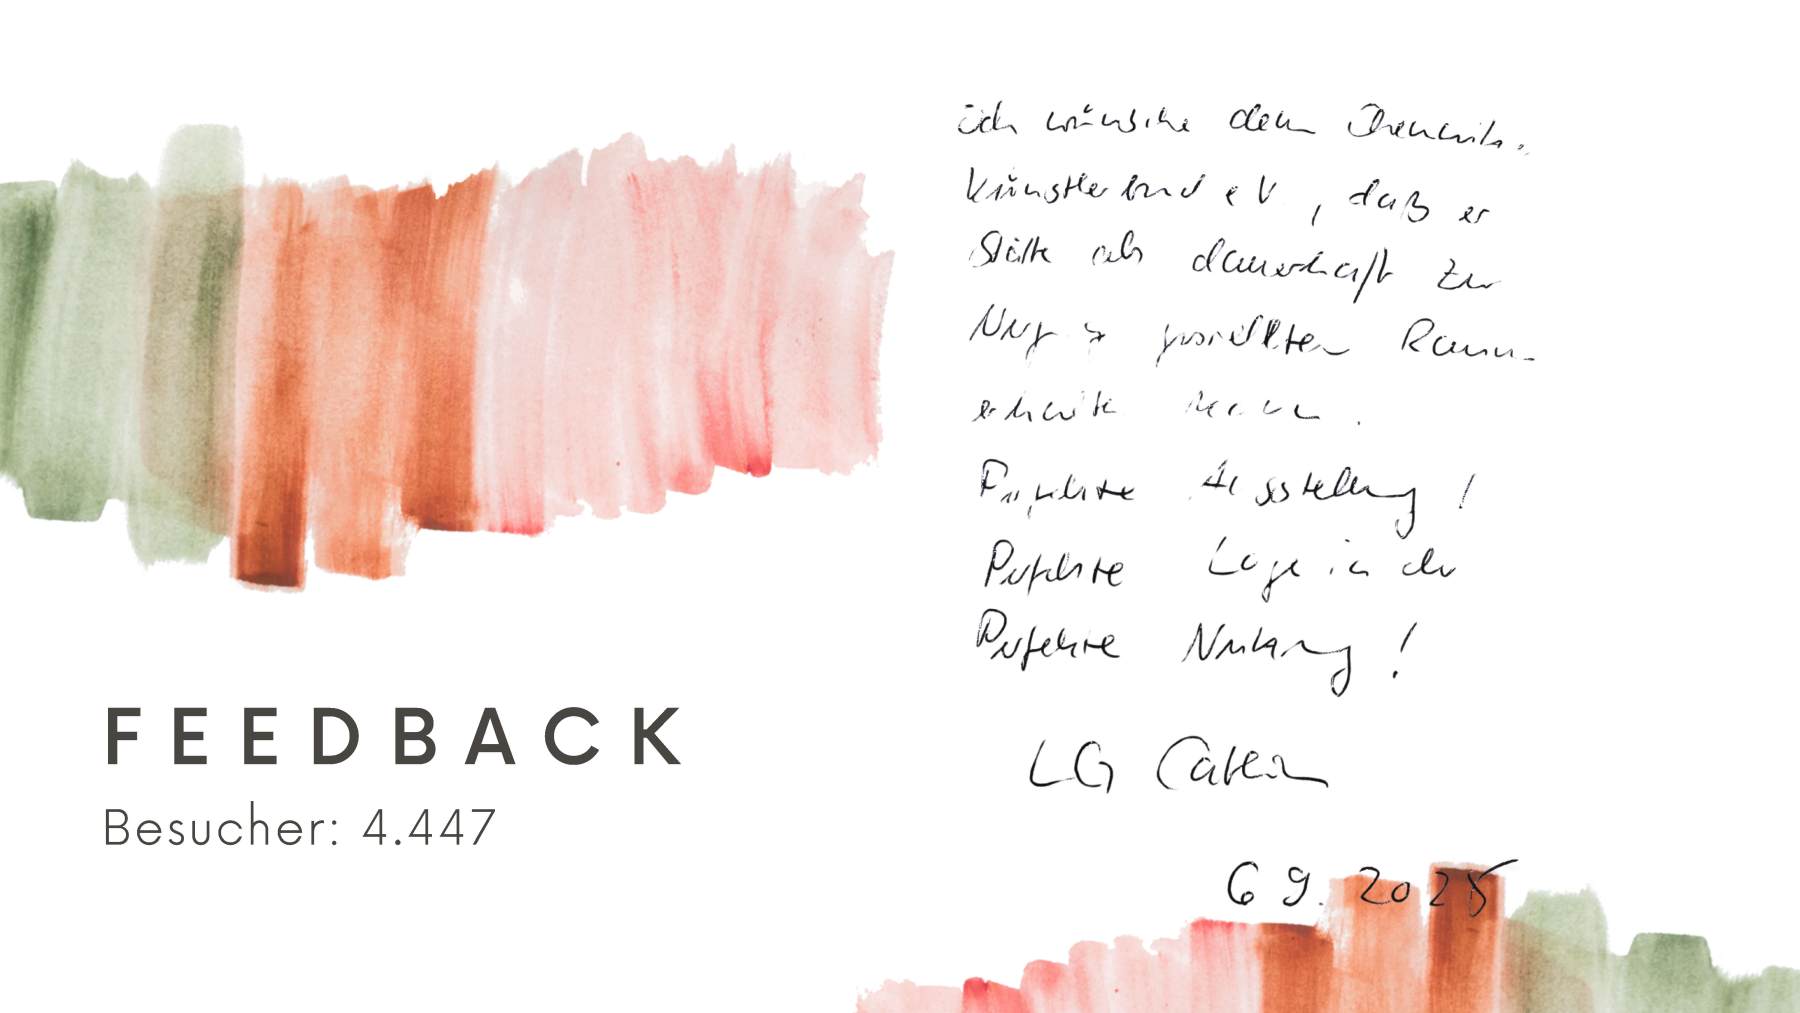 FEEDBACK
Besucher: 4.447
ich wünsche dem Chemnitz.
Künstlerbund eV, daß er
Stätte als dauerhaft zur
gestellten Raum-
erhalten kann.
Perfekte Ausstellung!
Perfekte Lage in der
Perfekte Nutzung!
LG Catrin
6 9. 2025